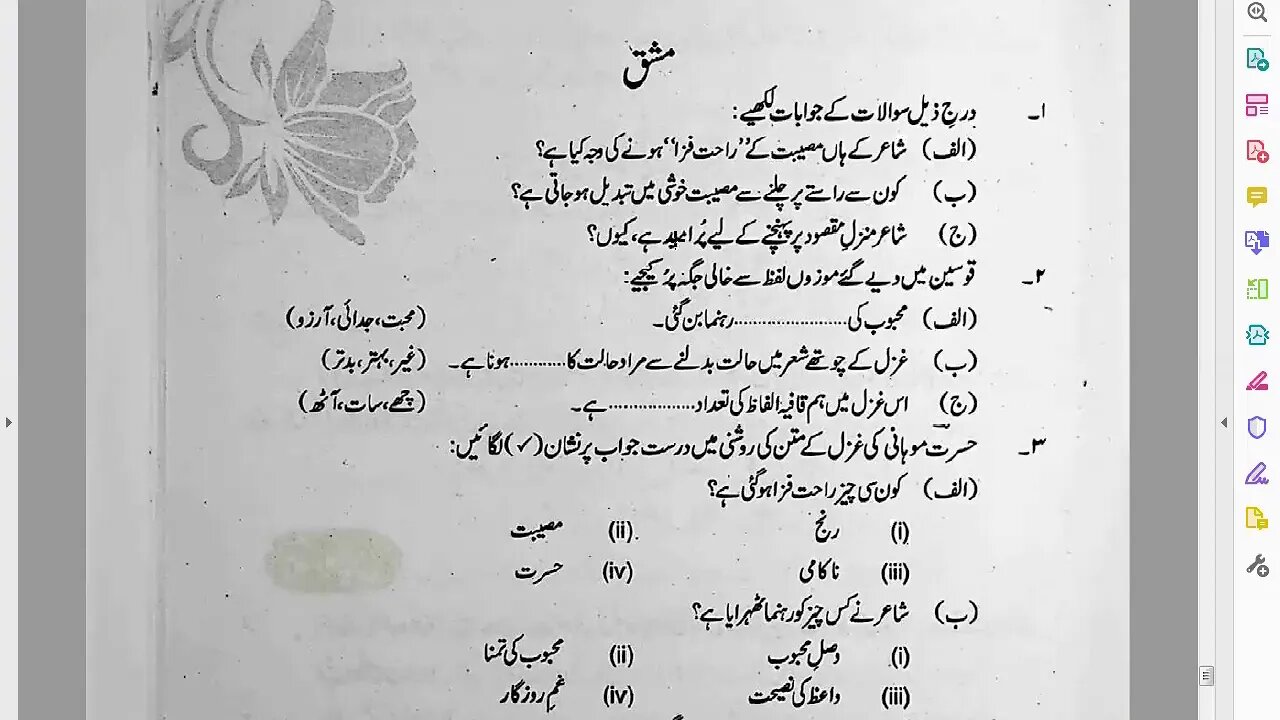 مشق
۱۔ درج ذیل سوالات کے جوابات لکھیے:
(الف) شاعر کے ہاں مصیبت کے ’’راحت فزا‘‘ ہونے کی وجہ کیا ہے؟
(ب) کون سے راستے پر چلنے سے مصیبت خوشی میں تبدیل ہو جاتی ہے؟
(ج) شاعر منزلِ مقصود پر پہنچنے کے لیے پُر امید ہے، کیوں؟
۲۔ قوسین میں دیے گئے موزوں لفظ سے خالی جگہ پُر کیجیے:
(الف) محبوب کی ..................... رہنما بن گئی۔ (محبت، جدائی، آرزو)
(ب) غزل کے چوتھے شعر میں حالت بدلنے سے مراد حالت کا ............ ہونا ہے۔ (غیر، بہتر، بدتر)
(ج) اس غزل میں ہم قافیہ الفاظ کی تعداد ................. ہے۔ (چھے، سات، آٹھ)
۳۔ حسرت موہانی کی غزل کے متن کی روشنی میں درست جواب پر نشان (✓) لگائیں:
(الف) کون سی چیز راحت فزا ہو گئی ہے؟
(i) رنج (ii) مصیبت
(iii) ناکامی (iv) حسرت
(ب) شاعر نے کس چیز کو رہنما ٹھہرایا ہے؟
(i) وصلِ محبوب (ii) محبوب کی تمنا
(iii) واعظ کی نصیحت (iv) غمِ روزگار